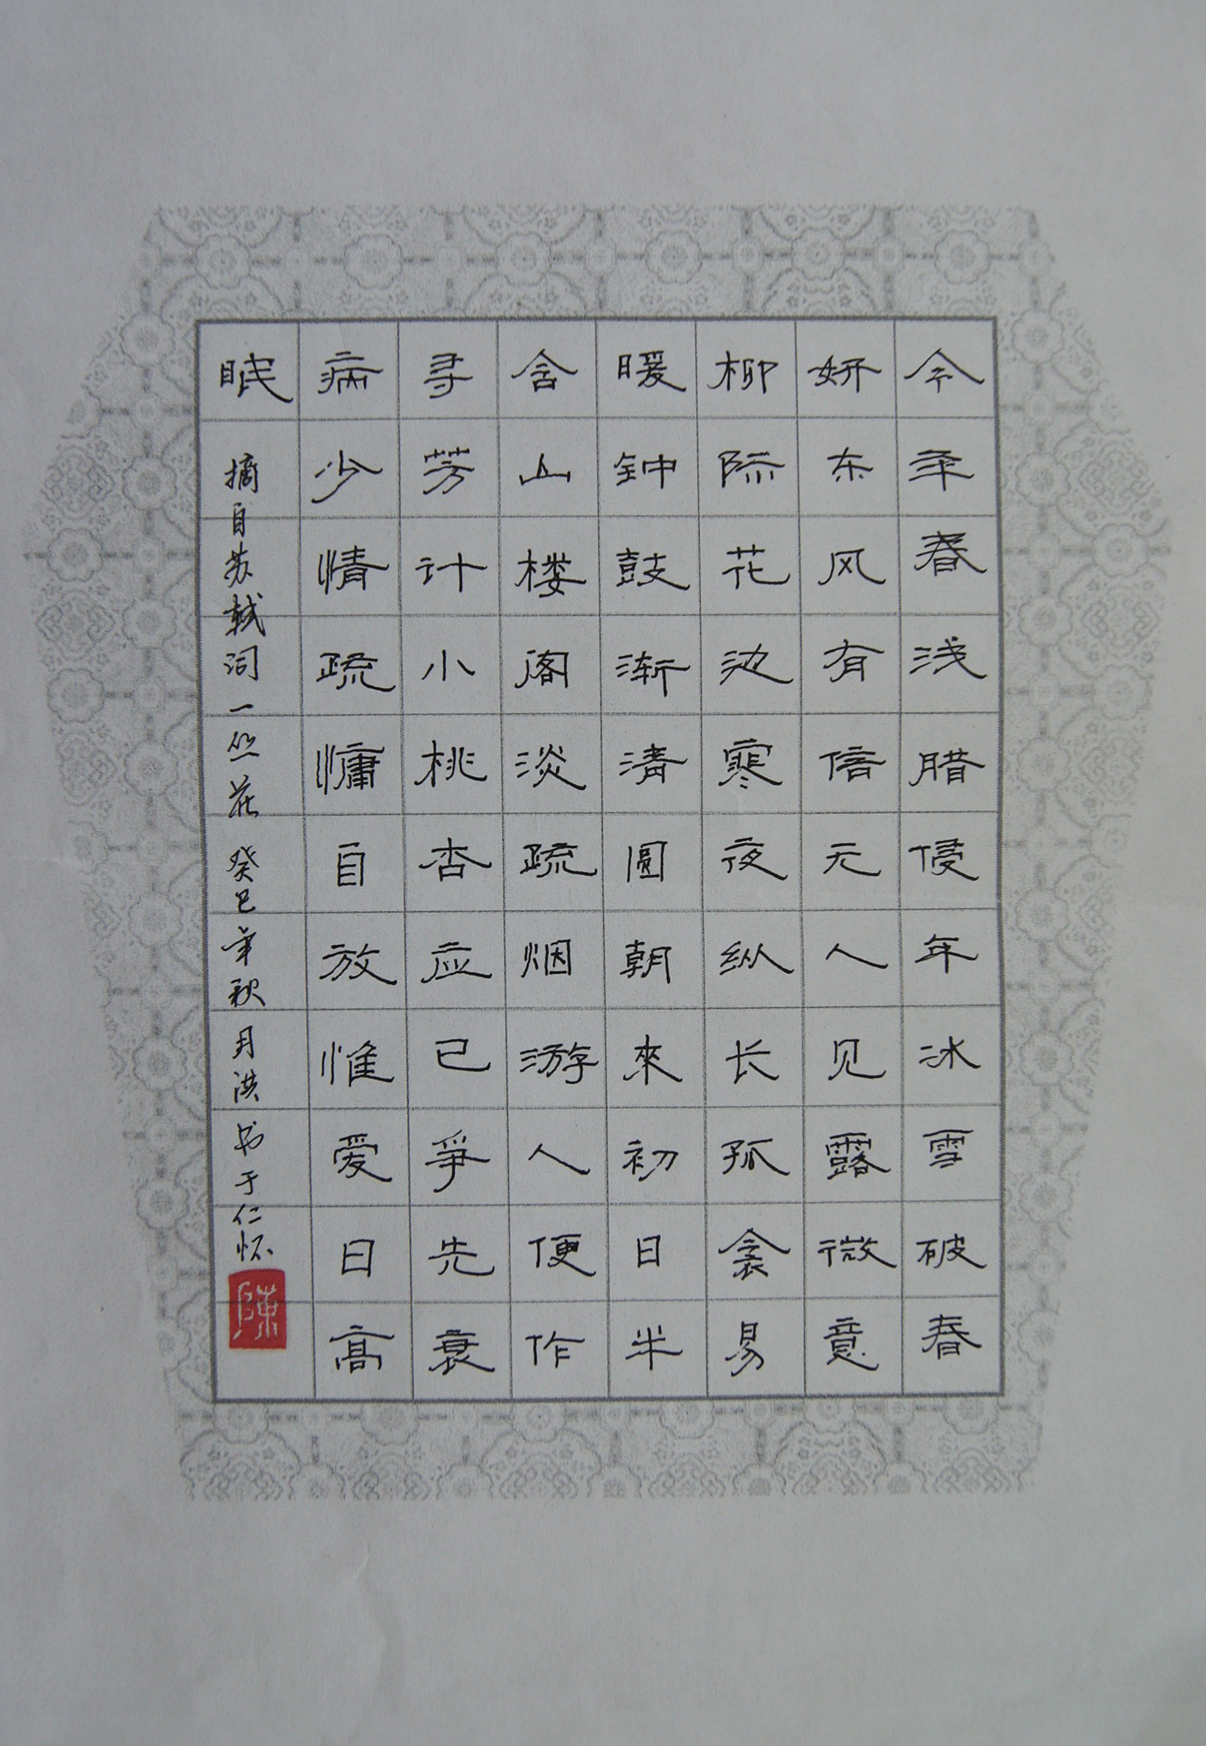 今年春浅腊侵年冰雪破春
妍东风有信无人见露微意
柳际花边寒夜纵长孤衾易
暖钟鼓渐清圆朝來初日半
含山楼阁淡疏烟游人便作
寻芳计小桃杏应已爭先衰
病少情疏慵自放惟爱日高
眠
摘自苏轼词一丛花 癸巳年秋月洪书于仁怀
陳